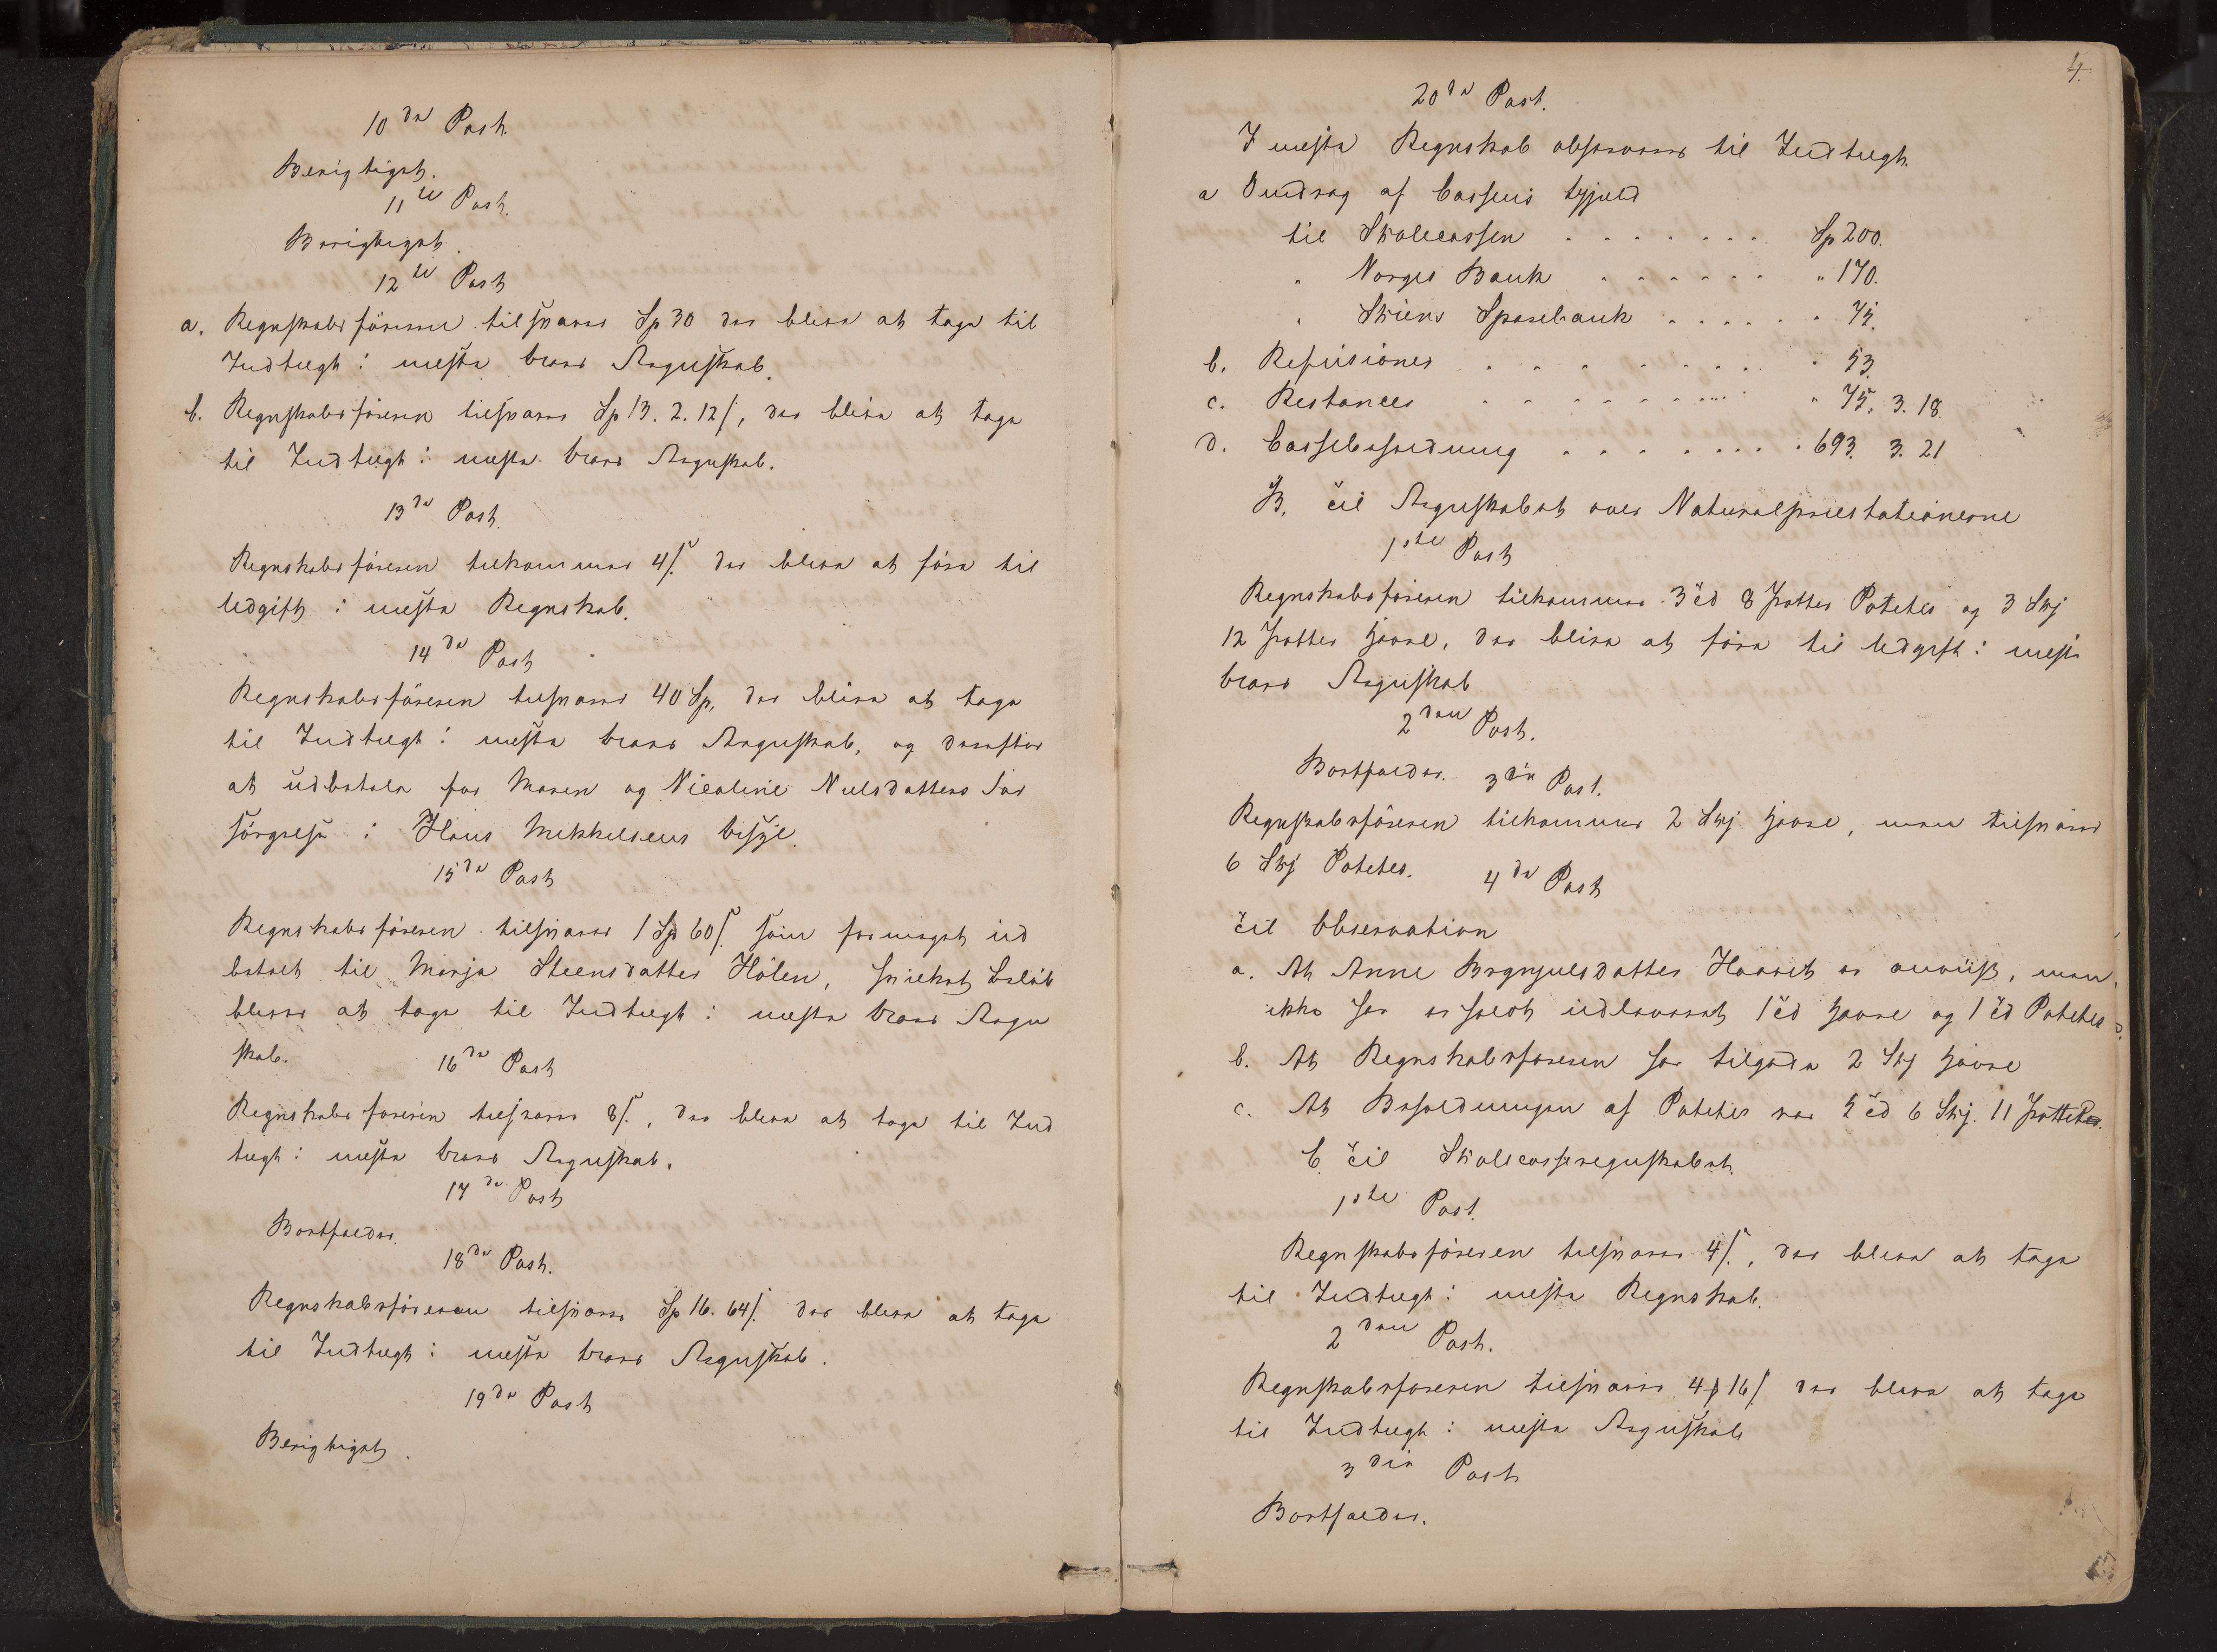 10de Post.
Berigtiget.
11te Post.
Berigtiget.
12te Post
a. Regnskabsføreren tilsvarer Sp 30 der blive at tage til
Indtægt i næste Aars Regnskab.
b. Regnskabsføreren tilsvarer Sp 13. 2. 12 s, der blive at tage
til Indtægt i næste Aars Regnskab.
13de Post.
Regnskabsføreren tilkommer 4 s. der blive at føre til
Udgift i næste Regnskab.
14de Post
Regnskabsføreren tilsvarer 40 Sp, der blive at tage
til Indtægt i næste Aars Regnskab, og derefter
at udbetale for Maren og Nicoline Nielsdatters For
sørgelse i Hans Mekkelsens
15de Post
Regnskabsføreren tilsvarer 1 Sp 60 s. som formeget ud
betalt til Marja Steensdatter Hølen, hvilket Beløb
bliver at tage til Indtægt i næste Aars Regn
skab.
16de Post
Regnskabsføreren tilsvarer 8 s., der blive at tage til Ind
tægt i næste Aars Regnskab.
17de Post
Bortfalder.
18de Post.
Regnskabsføreren tilsvarer Sp 16. 64 s. der blive at tage
til Indtægt i næste Aars Regnskab.
19de Post
Berigtiget.
4.
20de Post.
I næste Regnskab observeres til Indtægt.
a Inddrag af Cassens Gjæld
til Skolecassen . . . . . . . Sp 200.
" Norges Bank . . . . . . " 170.
" Skiens Sparebank . . . . . . " 75.
b. Refusioner . . . . . . . . " 53.
c. Restancer . . . . . . . . " 75. 3. 18.
d. Cassebeholdning . . . . . . . " 693. 3. 21
B. Til Regnskabet over Naturalpræstationerne
1ste Post
Regnskabsføreren tilkommer 3 Td 8 Potter Poteter og 3 Skj
12 Potter Havre, der blive at føre til Udgift i næste
Aars Regnskab
2den Post.
Bortfalder.
3die Post.
Regnskabsføreren tilkommer 2 Skj Havre, men tilsvarer
6 Skj Poteter.
4de Post
Til Observation
a. At Anne Brynjulsdatter er anviist, men
ikke har erholdt udleveret 1 Td Havre og 1 Td Poteter
b. At Regnskabsføreren har tilgode 2 Skj Havre
c. At Beholdningen af Poteter var 5 Td 6 Skj. 11 Potter.
C. Til Skolecasseregnskabet.
1ste Post.
Regnskabsføreren tilsvarer 4 s., der blive at tage
til Indtægt i næste Regnskab.
2den Post.
Regnskabsføreren tilsvarer 4 16 s der blive at tage
til Indtægt i næste Regnskab
3die Post
Bortfalder.